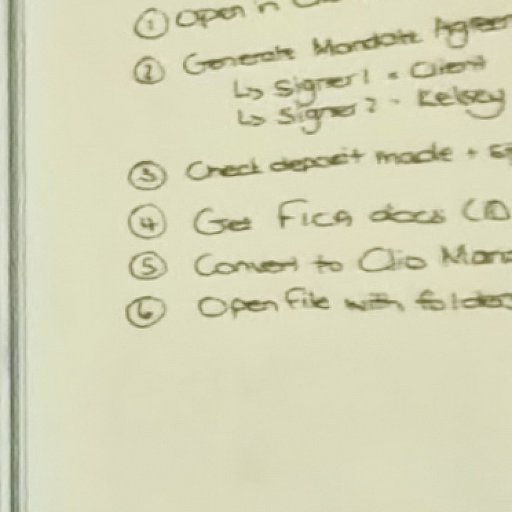 ① Open in
② Generate Mandate Agree
↳ Signer 1 = Client
↳ Signer 2 - Kelsey
③ Check deposit made +
④ Get FICA docs (ID
⑤ Convert to Clio Mana
⑥ Open file with folders